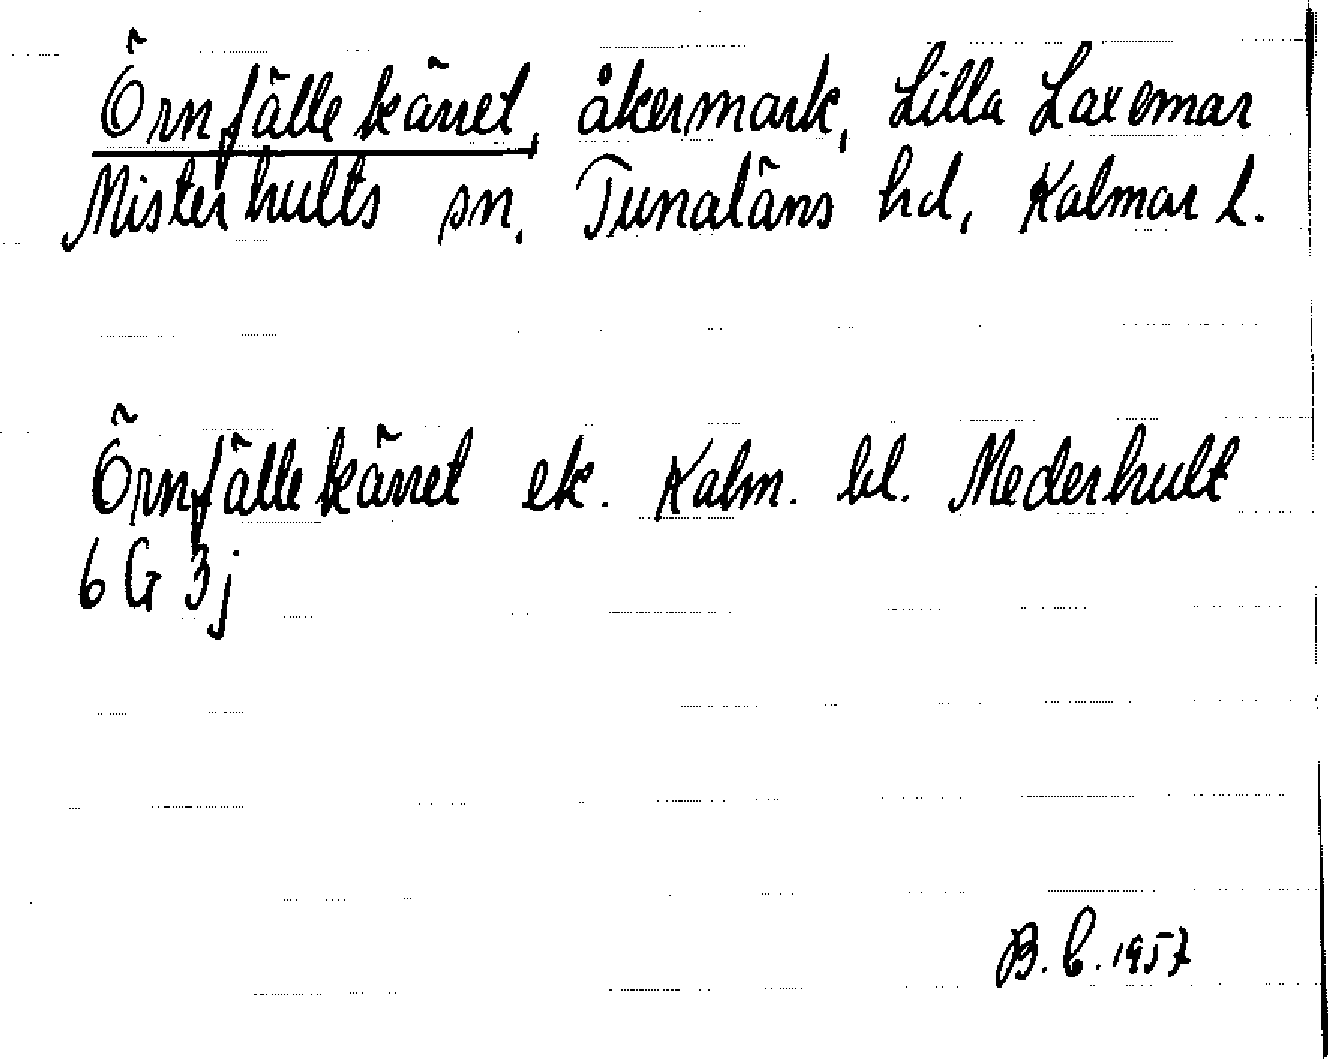 Örnfällekärret, åkermark, Lilla Laxemar
Misterhults sn. Tunaläns hd, Kalmar l.
Örnfällekärret ek. Kalm. bl. Mederhult
6 G 3j
B. C. 1957